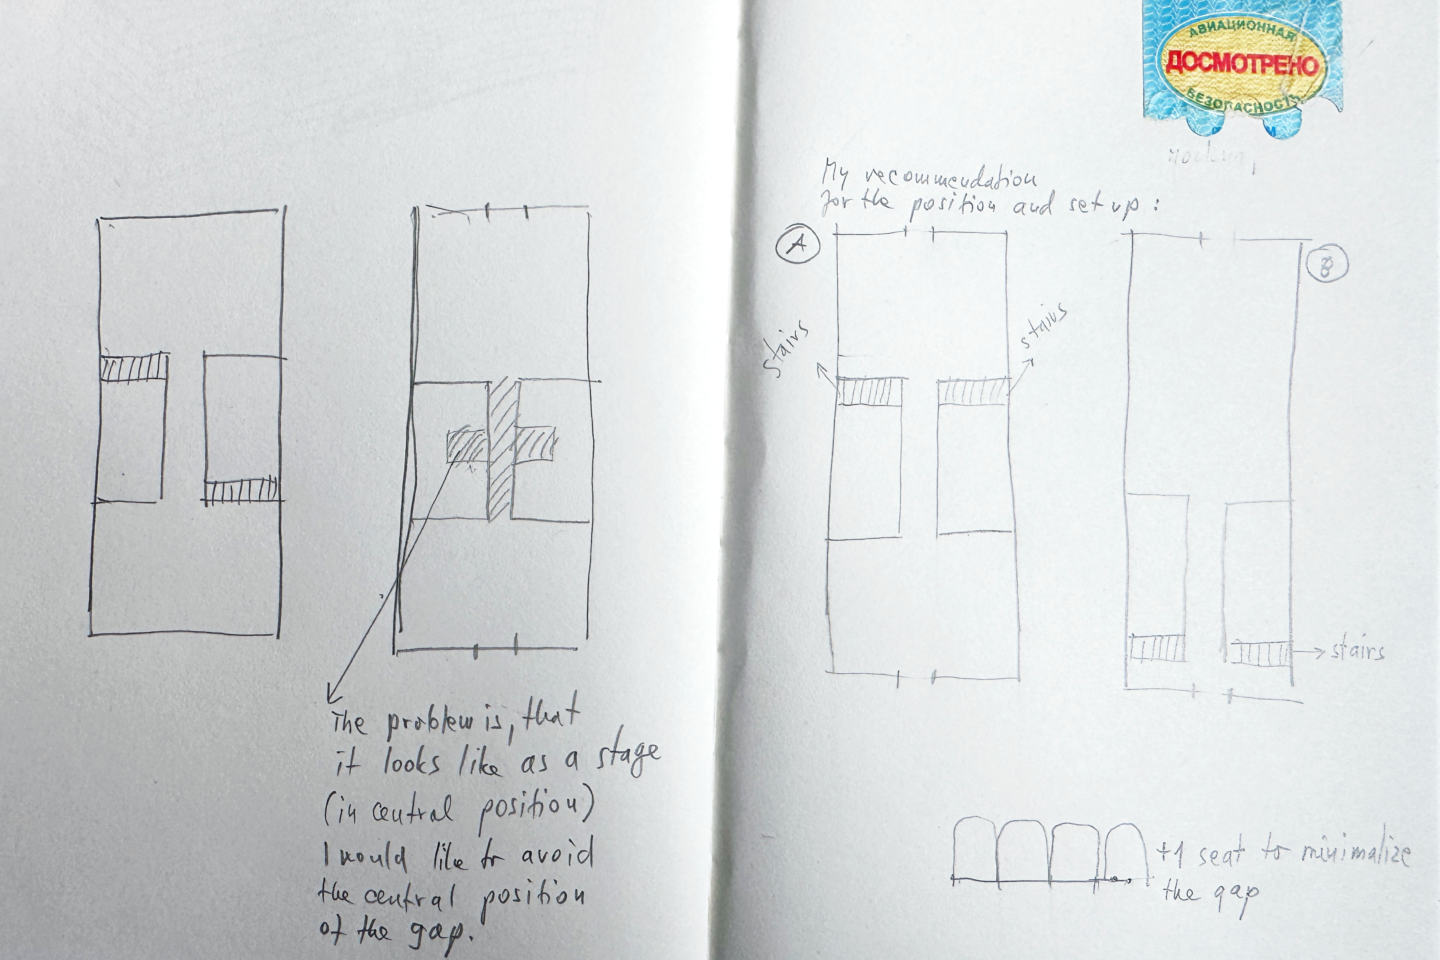 The problem is, that
it looks like as a stage
(in central position)
I would like to avoid
the central position
of the gap.
АВИАЦИОННАЯ
ДОСМОТРЕНО
БЕЗОПАСНОСТЬ
My recommendation
for the position and set up:
A
B
stairs
stairs
stairs
+1 seat to minimalize
the gap